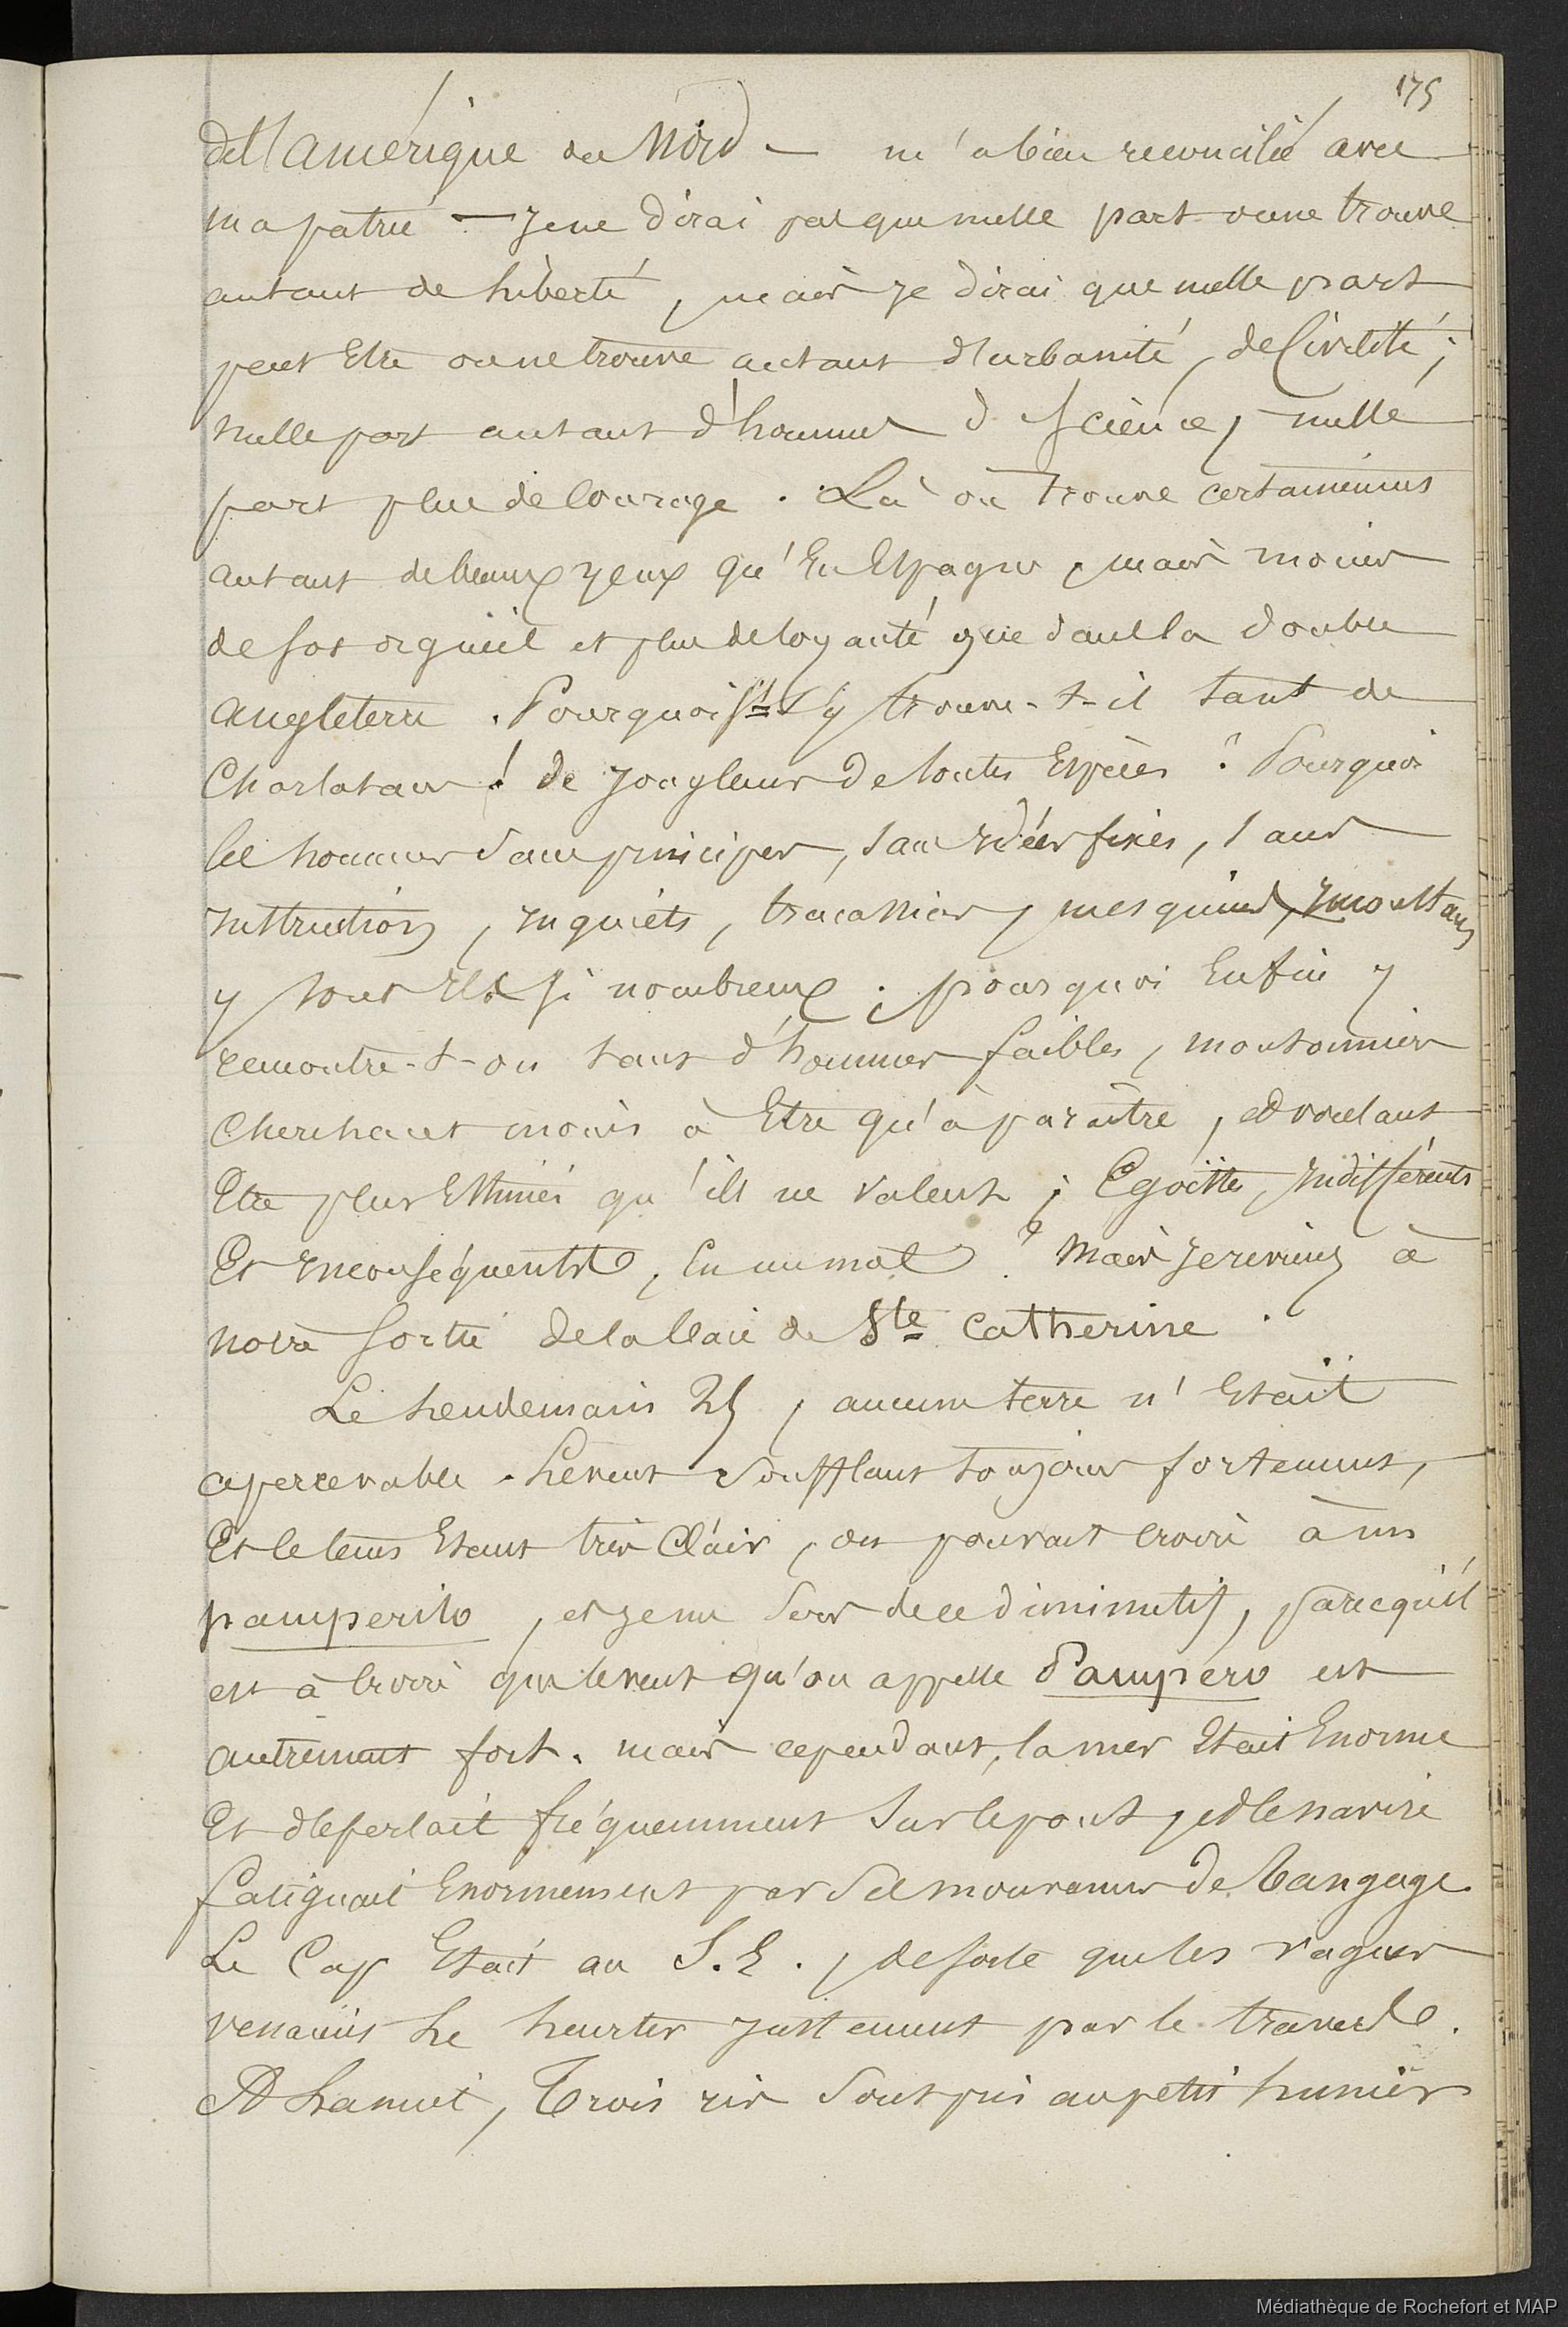 175
de l'amérique du Nord — m'a bien reconcilié avec
ma patrie — Je ne dirai pas que nulle part on ne trouve
autant de liberté, mais je dirai que nulle part
peut Etre on ne trouve autant d'urbanité, de Civilité;
nulle part autant d'hommes d science, nulle
part plus de Courage. Là on trouve certainement
autant de beaux yeux qu'En Espagne, mais moins
de sot orgueil et plus de loyauté que dans la double
angleterre. Pourquoi s'y trouve-t-il tant de
Charlatans! de Jongleurs de toutes Espèces? Pourquoi
les hommes sans principes, sans Idées fixes, sans
Instruction, Inquiets, tracassiers, mesquins, Inconstans
y sont Ils si nombreux; pourquoi Enfin y
rencontre-t-on tant d'hommes faibles, moutonniers
Cherchant moins à Etre qu'à paraître, et voulant
Etre plus Estimés qu'ils ne valent; Egoïstes, Indifférents
Et Inconséquents, En un mot? Mais je reviens à
notre Sortie de la baie de Ste Catherine.
Le lendemain 25, aucune terre n'Etait
apercevable. Le vent Soufflant toujours fortement,
Et le tems Etant très Clair, on pouvait croire à un
pamperito, et je me sers de ce diminutif, parcequ'il
est à croire que le vent qu'on appelle Pampero est
autrement fort. mais cependant, la mer Etait Enorme
Et déferlait fréquemment sur le pont, et le navire
fatiguait Enormement par Ses mouvemens de tangage
Le Cap Etait au S.E., de sorte que les vagues
venaient le heurter justement par le travers.
A la nuit, Trois ris sont pris au petit hunier
Médiathèque de Rochefort et MAP